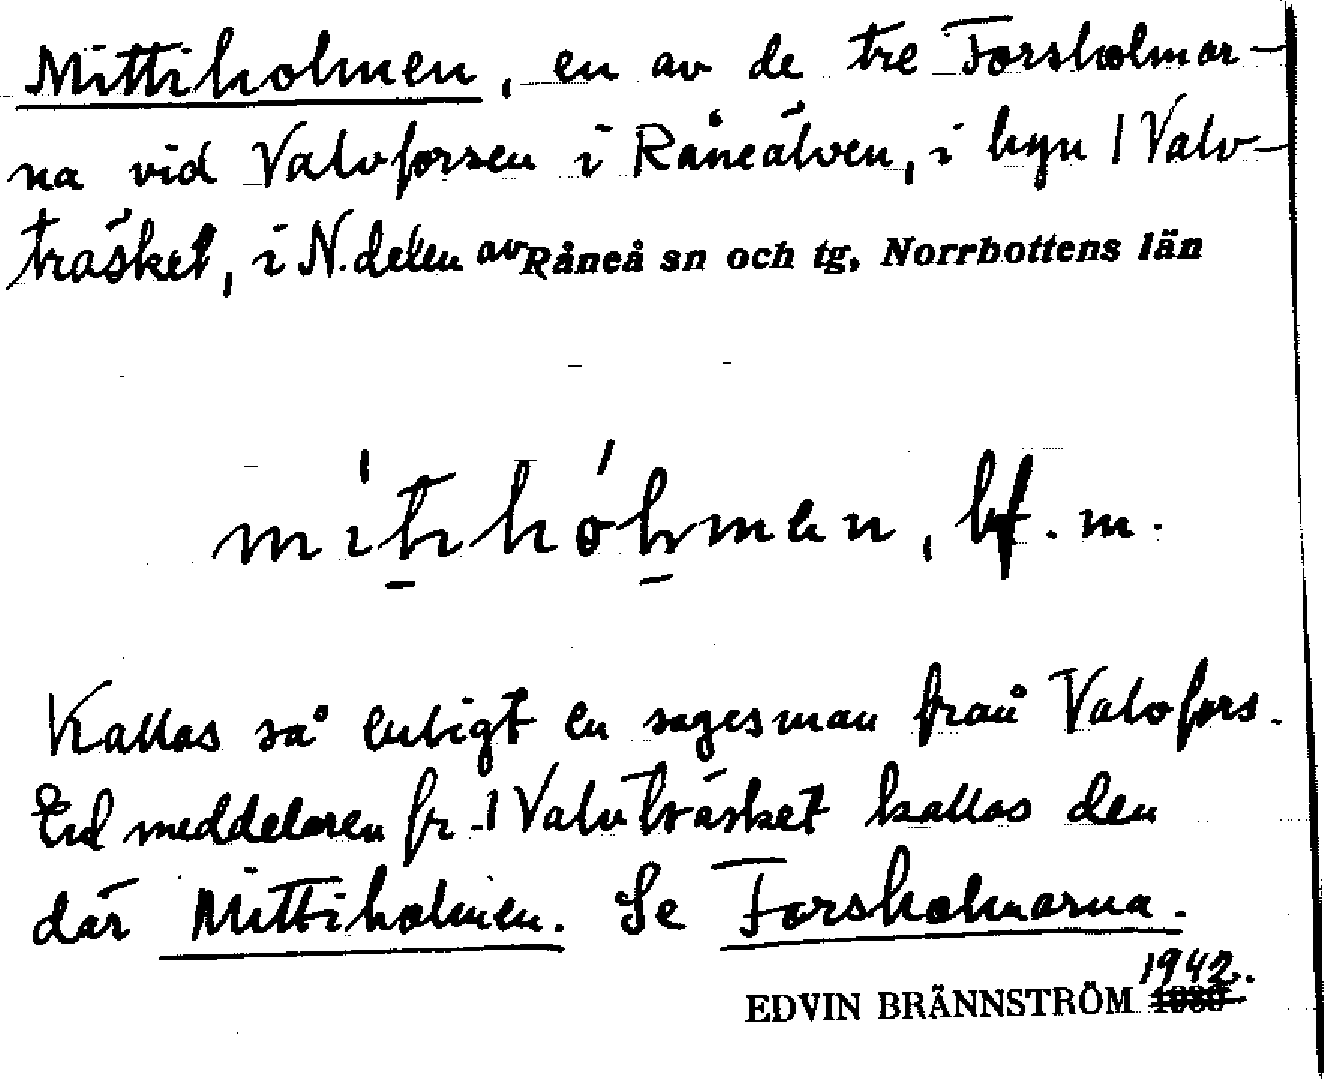 Mittiholmen, en av de tre Forsholmar-
na vid Valvforsen i Råneälven, i byn 1 Valv-
träsket, i N. delen av Råneå sn och tg, Norrbottens län
bf. m.
Kallas så enligt en sagesman från Valvfors.
End meddelaren fr. 1 Valvträsket kallas den
där Mittiholmen. Se Forsholmarna.
1942.
EDVIN BRÄNNSTRÖM